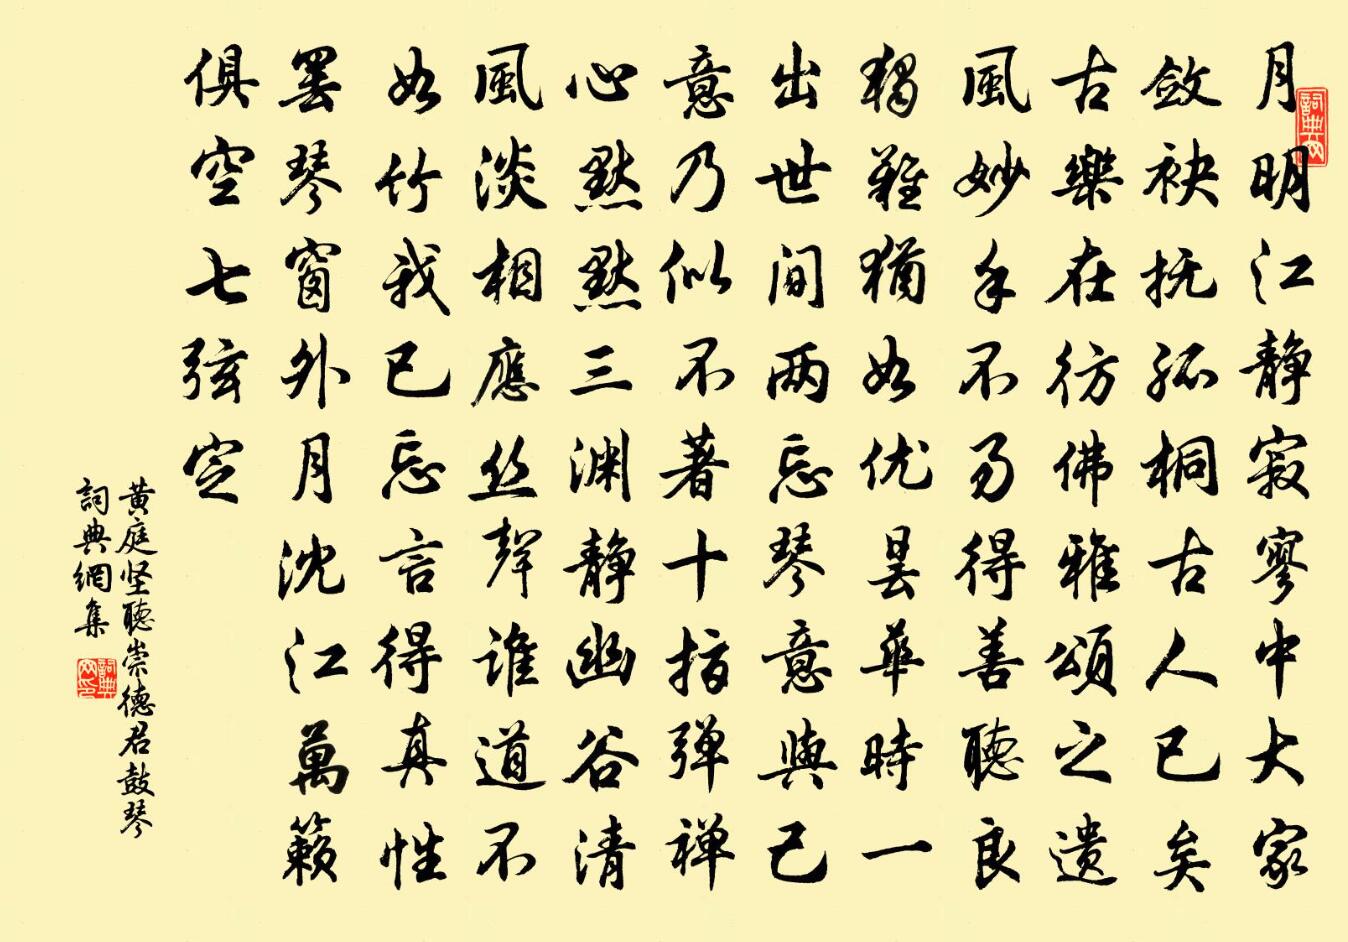 月明江静寂寥中大家
敛袂抚孤桐古人已矣
古樂在彷佛雅頌之遗
風妙手不易得善聽良
獨難猶如优昙華時一
出世间两忘琴意與己
意乃似不著十指弹禅
心默默三渊静幽谷清
風淡相應丝聲谁道不
如竹我已忘言得真性
罢琴窗外月沈江萬籁
俱空七弦定
黄庭坚聽崇德君鼓琴
詞典網集
詞典网
詞典网印